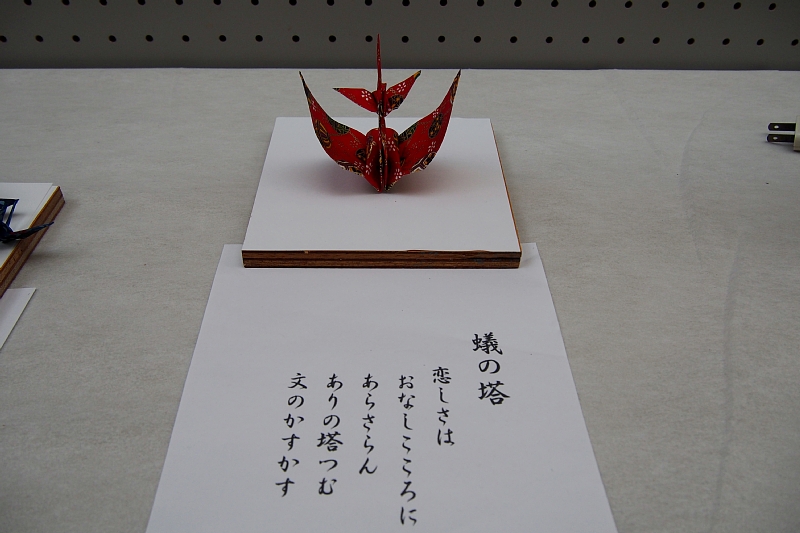 蟻の塔
恋しさは
おなしこころに
あらさらん
ありの塔つむ
文のかすかす